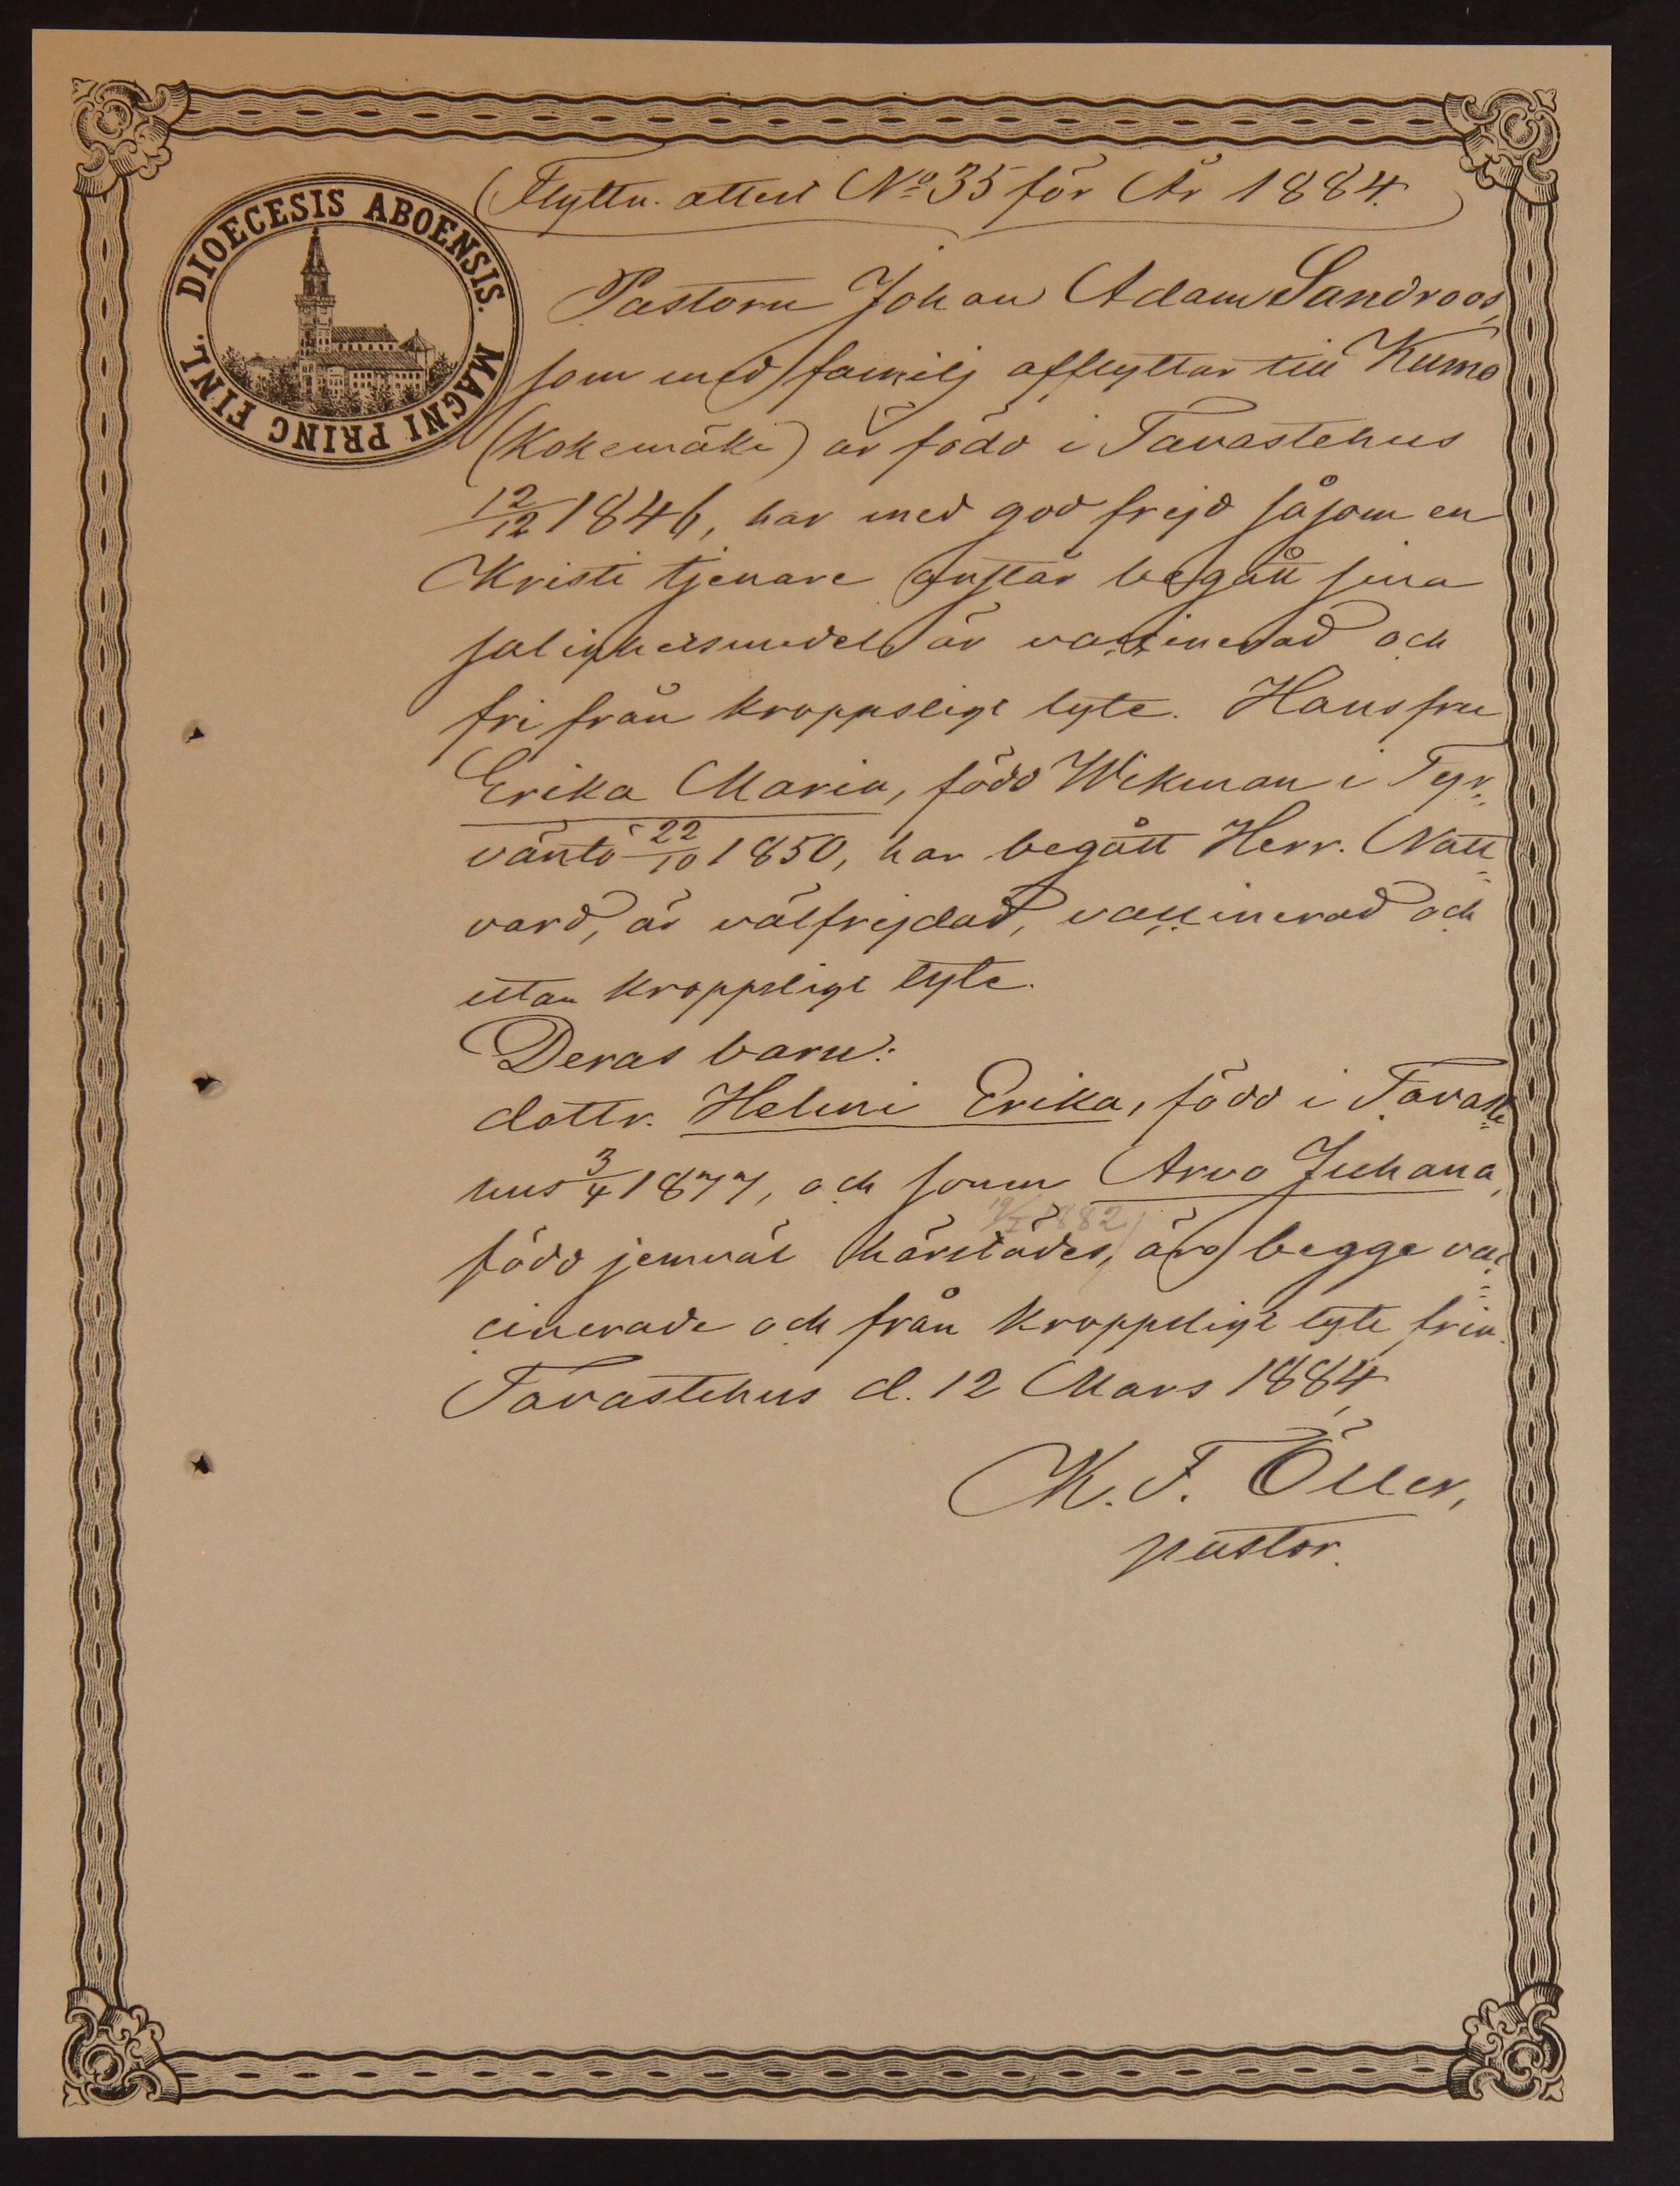 DIOECESIS ABOENSIS. MAGNI PRINC FINL.
Flyttn. attest No 35 för År 1884.
Pastorn Johan Adam Sandroos,
som med familj afflyttar till Kumo
(Kokemäki) är född i Tavastehus
12/12 1846, har med god frejd såsom en
Kristi tjenare begått sina
salighetsmedel, är vaccinerad och
fri från kroppsligt lyte. Hans fru
Erika Maria, född Wikman i Tyr-
väntö 22/10 1850, har begått Herr. Natt-
vard, är välfrejdad, vaccinerad och
utan kroppsligt lyte.
Deras barn:
dottr. Helmi Erika, född i Tavaste-
hus 3/4 1877, och sonen Arvo Juhana,
1882
född jemväl härstädes, äro begge vac-
cinerade och från kroppsligt lyte fria.
Tavastehus d. 12 Mars 1884,
K. F. Öller,
pastor.